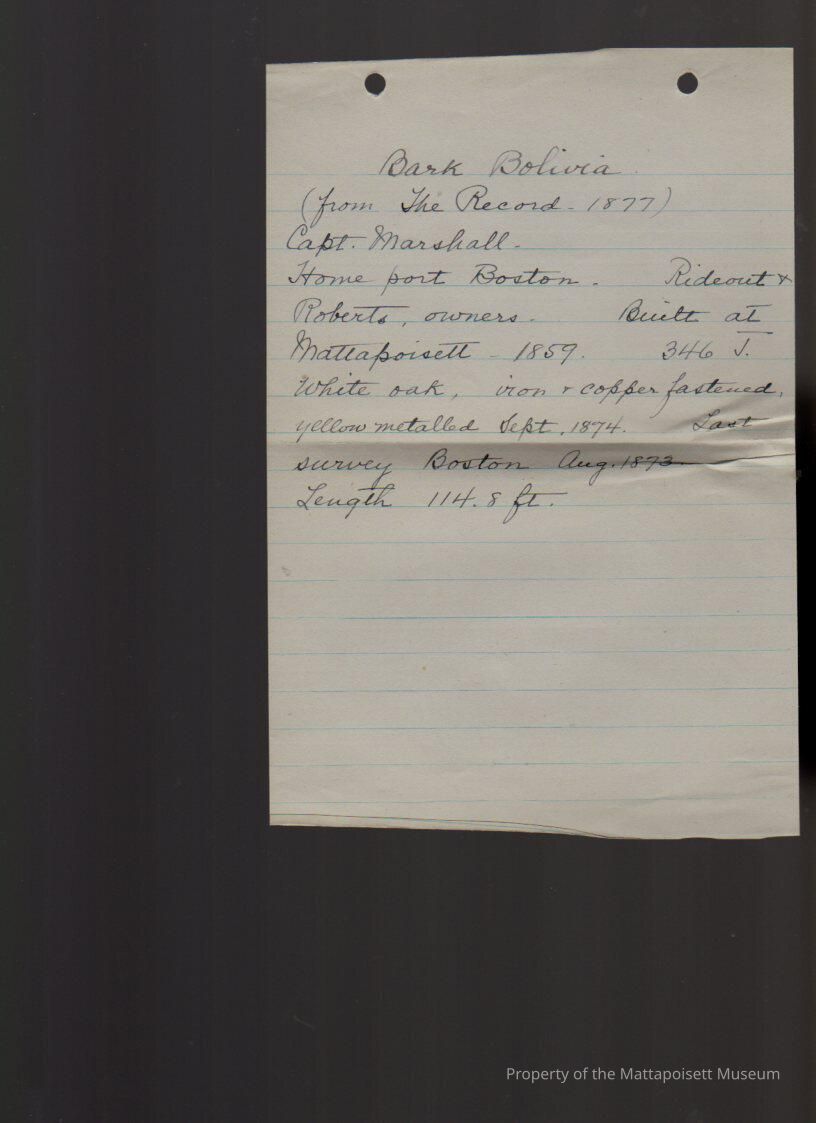 Bark Bolivia.
(from The Record - 1877)
Capt. Marshall -
Home port Boston. Rideout &
Roberts, owners. Built at
Mattapoisett - 1859. 346 T.
White oak, iron & copper fastened,
yellow metalled Sept. 1874. Last
survey Boston Aug. 1873.
Length 114.8 ft.
Property of the Mattapoisett Museum